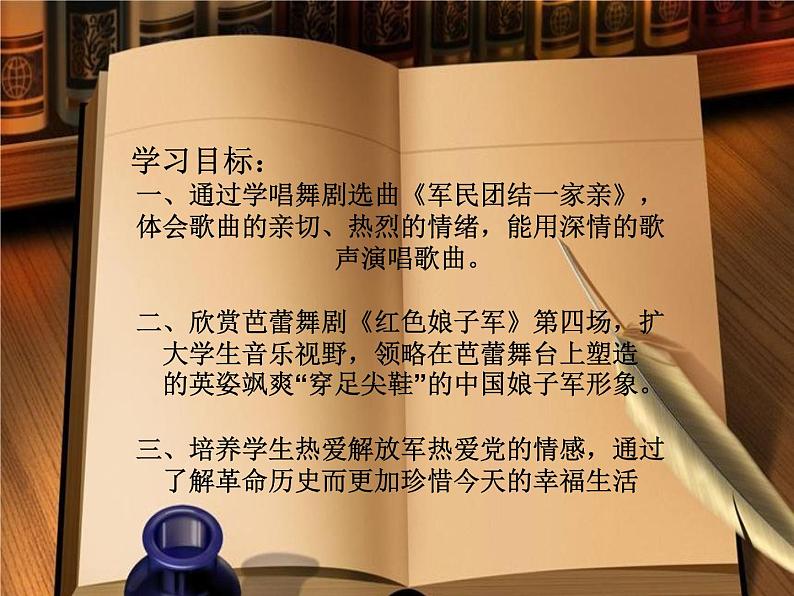 学习目标：
一、通过学唱舞剧选曲《军民团结一家亲》，
体会歌曲的亲切、热烈的情绪，能用深情的歌
声演唱歌曲。
二、欣赏芭蕾舞剧《红色娘子军》第四场，扩
大学生音乐视野，领略在芭蕾舞台上塑造
的英姿飒爽“穿足尖鞋”的中国娘子军形象。
三、培养学生热爱解放军热爱党的情感，通过
了解革命历史而更加珍惜今天的幸福生活